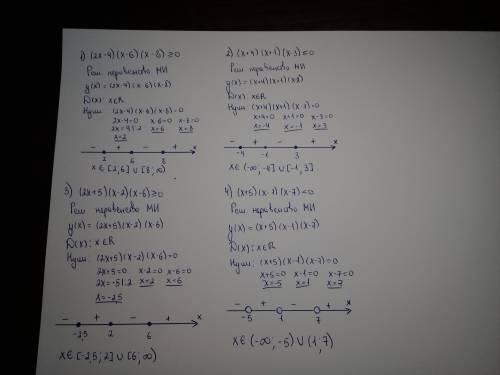 1) (2x-4)(x-6)(x-8)≥0
Реш неравенство МИ
y(x)=(2x-4)(x-6)(x-8)
D(x): x∈R
Нули: (2x-4)(x-6)(x-8)=0
2x-4=0 x-6=0 x-8=0
2x=4|:2 x=6 x=8
x=2
- + - + x
2 6 8
x∈[2;6]∪[8;∞)
2) (x+4)(x+1)(x-3)≤0
Реш неравенство МИ
y(x)=(x+4)(x+1)(x-3)
D(x): x∈R
Нули: (x+4)(x+1)(x-3)=0
x+4=0 x+1=0 x-3=0
x=-4 x=-1 x=3
- + - + x
-4 -1 3
x∈(-∞;-4]∪[-1;3]
3) (2x+5)(x-2)(x-6)≥0
Реш неравенство МИ
y(x)=(2x+5)(x-2)(x-6)
D(x): x∈R
Нули: (2x+5)(x-2)(x-6)=0
2x+5=0 x-2=0 x-6=0
2x=-5|:2 x=2 x=6
x=-2,5
- + - + x
-2,5 2 6
x∈[-2,5;2]∪[6;∞)
4) (x+5)(x-1)(x-7)<0
Реш неравенство МИ
y(x)=(x+5)(x-1)(x-7)
D(x): x∈R
Нули: (x+5)(x-1)(x-7)=0
x+5=0 x-1=0 x-7=0
x=-5 x=1 x=7
- + - + x
-5 1 7
x∈(-∞;-5)∪(1;7)